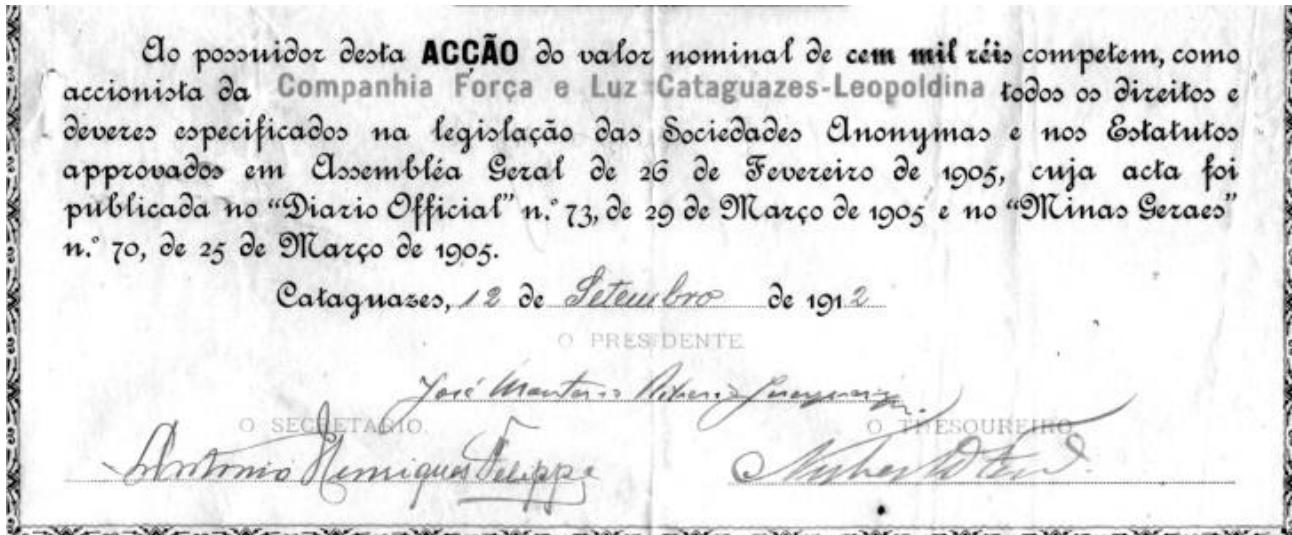 Ao possuidor desta ACCÃO do valor nominal de cem mil réis competem, como
accionista da Companhia Força e Luz Cataguazes-Leopoldina todos os direitos e
deveres especificados na legislação das Sociedades Anonymas e nos Estatutos
approvados em Assembléa Geral de 26 de Fevereiro de 1905, cuja acta foi
publicada no “Diario Official” n.º 73, de 29 de Março de 1905 e no “Minas Geraes”
n.º 70, de 25 de Março de 1905.
Cataguazes, 12 de Setembro de 1912
O PRESIDENTE
José Monteiro Ribeiro Junqueira
O SECRETARIO.
O THESOUREIRO
Antonio Henriques Felippe